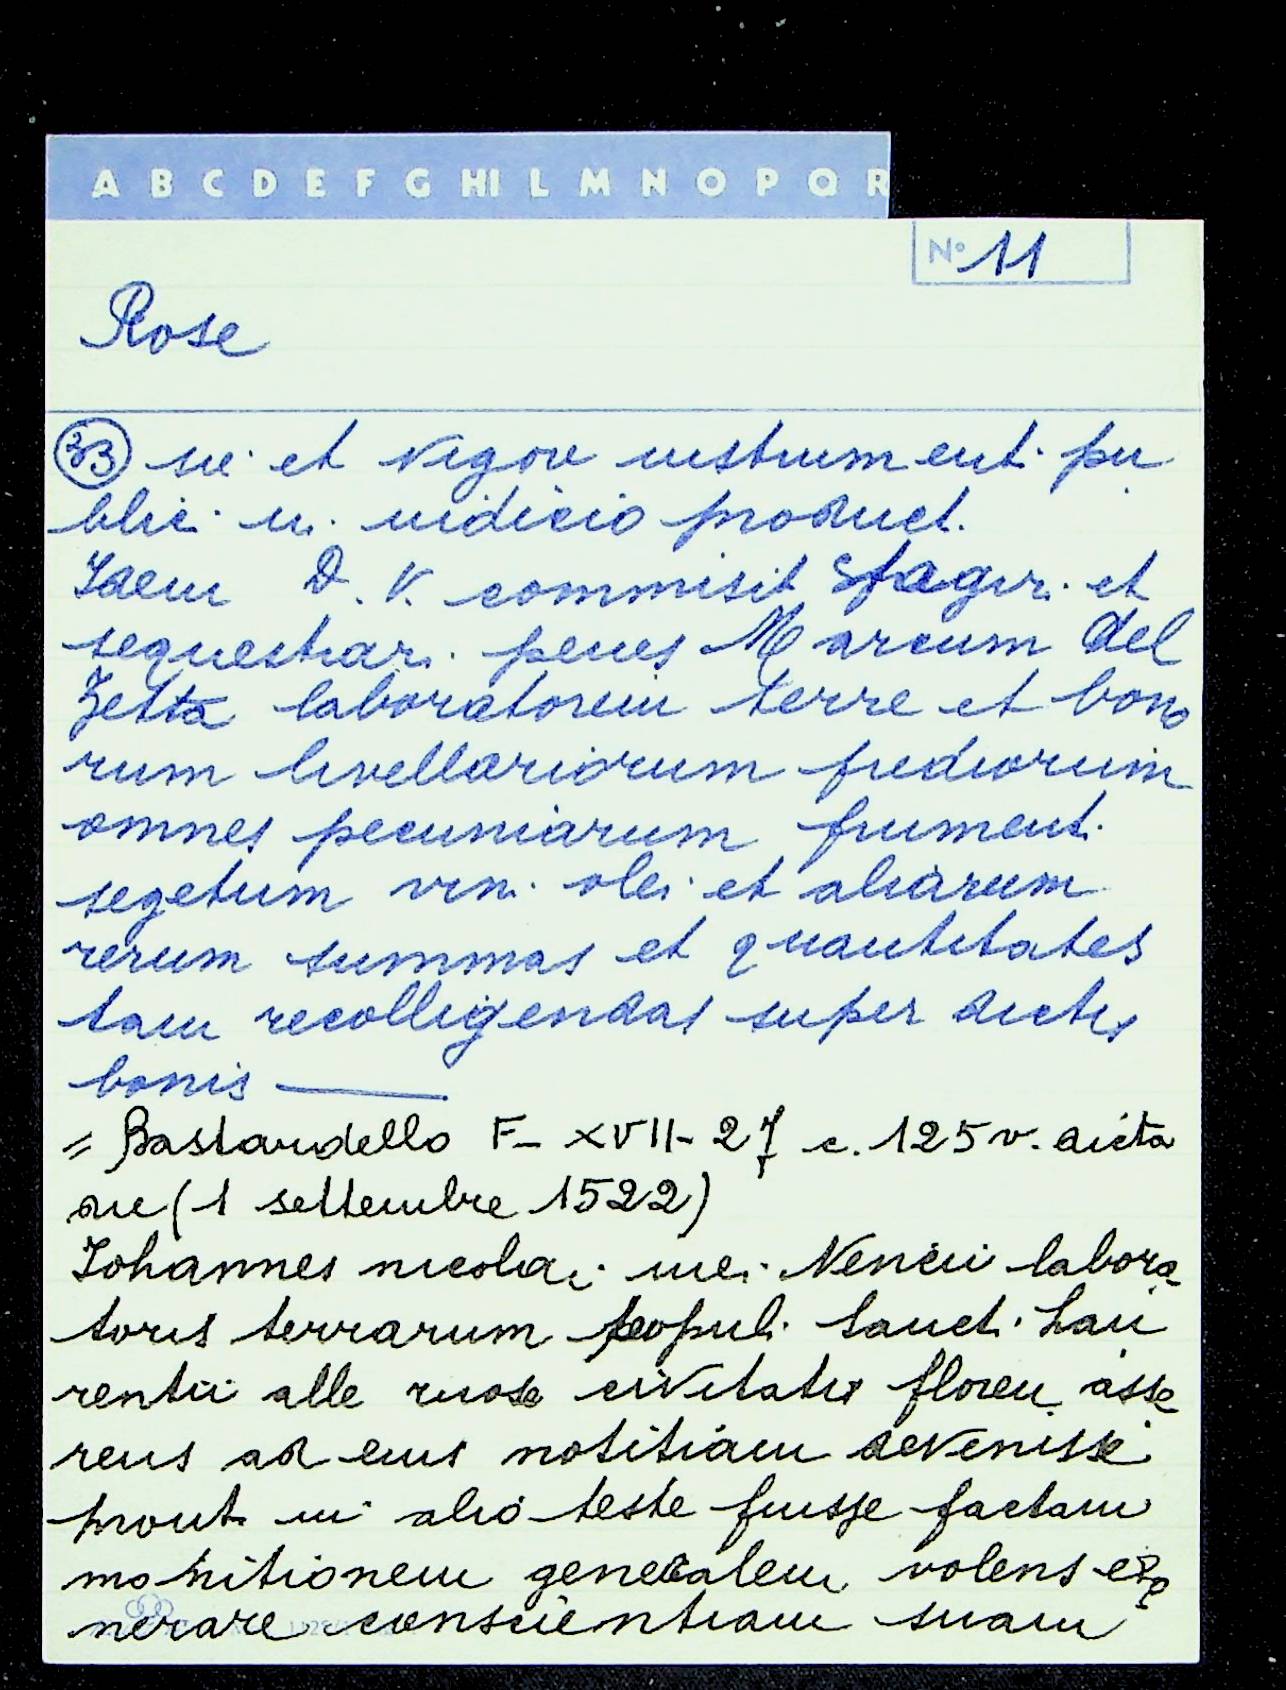 A B C D E F G HI L M N O P Q R
N° 11
Rose
vi et vigore instrumenti pu
blici in iudicio product.
Idem D. V. commisit stagiri et
sequestrari penes Marcum del
Zetta laboratorem terre et bono
rum livellariorum prediorum
omnes pecuniarum frumenti
segetum vini olei et aliarum
rerum summas et quantitates
tam recolligendas super dictis
bonis
= Bastardello F- XVII- 27 c. 125 v. dicta
die (1 settembre 1522)
Johannes nicolai mei Nencii labora
toris terrarum populi Sancti Lau
rentii alle ruose civitatis floren. asse
rens ad eius notitiam devenisse
prout in alio teste fuisse factam
monitionem generalem volens exo
nerare conscientiam suam